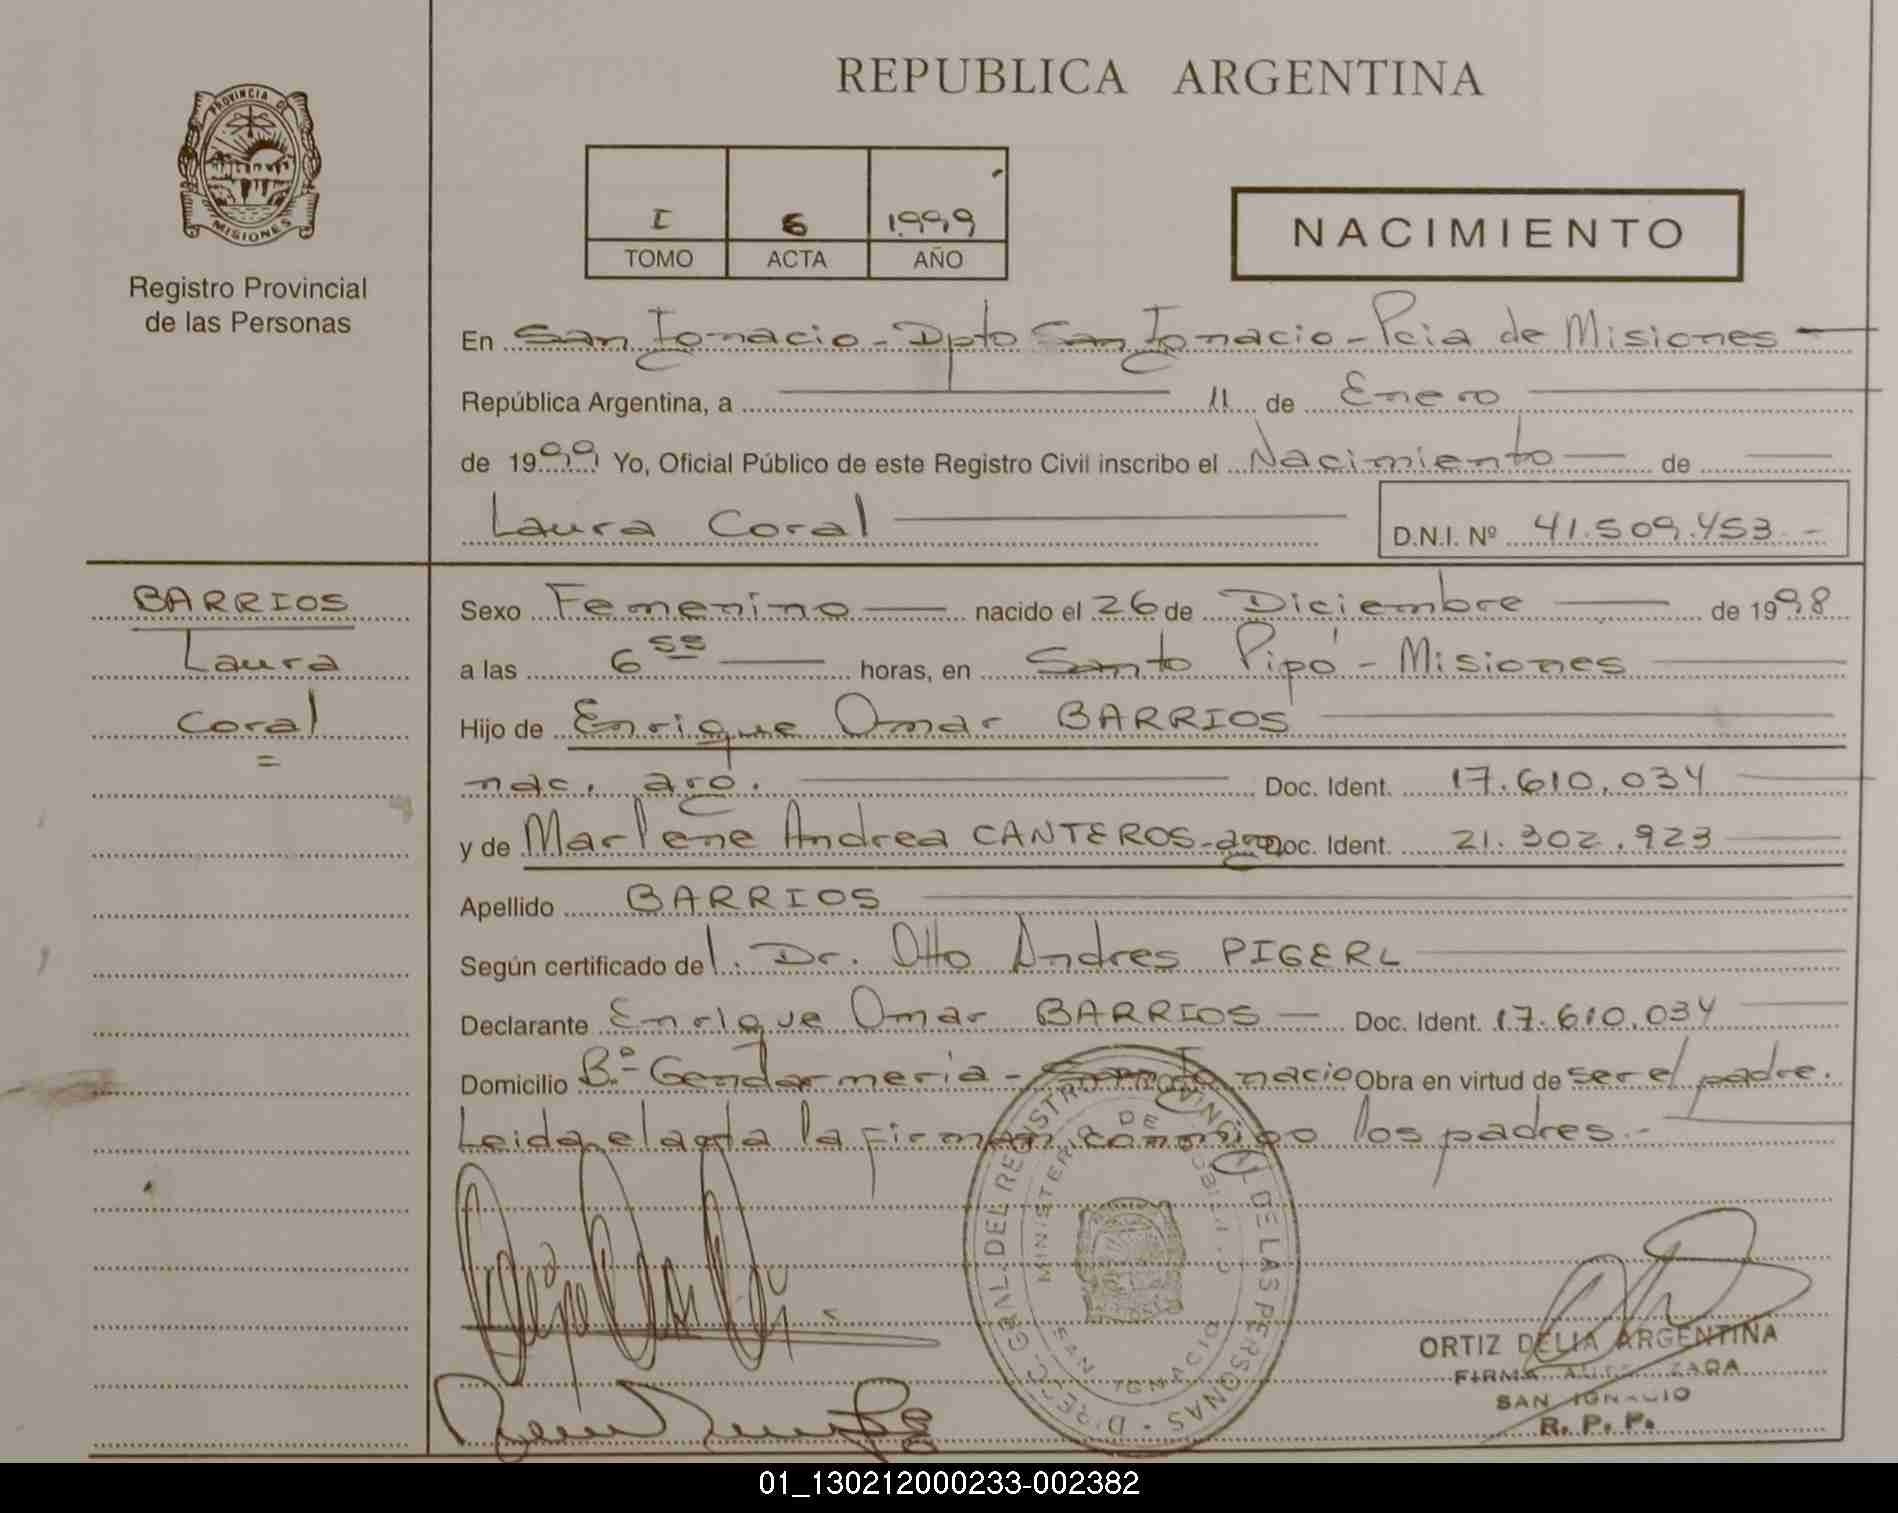 PROVINCIA DE
MISIONES
Registro Provincial
de las Personas
REPUBLICA ARGENTINA
I 6 1.999
TOMO ACTA AÑO
NACIMIENTO
En San Ignacio - Dpto San Ignacio - Pcia de Misiones
República Argentina, a 11 de Enero
de 1999 Yo, Oficial Público de este Registro Civil inscribo el Nacimiento de
Laura Coral
D.N.I. Nº 41.509.453.-
BARRIOS
Laura
Coral
Sexo Femenino nacido el 26 de Diciembre de 1998
a las 6 55 horas, en Santo Pipó - Misiones
Hijo de Enrique Omar BARRIOS
nac. arg. Doc. Ident. 17.610.034
y de Marlene Andrea CANTEROS - arg Doc. Ident. 21.302.923
Apellido BARRIOS
Según certificado del Dr. Otto Andres PIGERL
Declarante Enrique Omar BARRIOS Doc. Ident. 17.610.034
Domicilio Bº Gendarmeria - San Ignacio Obra en virtud de ser el padre.
Leida el acta la firman conmigo los padres.-
DIRECC. GRAL. DEL REGISTRO PROVINCIAL DE LAS PERSONAS
MINISTERIO DE GOBIERNO
SAN IGNACIO
ORTIZ DELIA ARGENTINA
FIRMA AUTORIZADA
SAN IGNACIO
R. P. P.
01_130212000233-002382